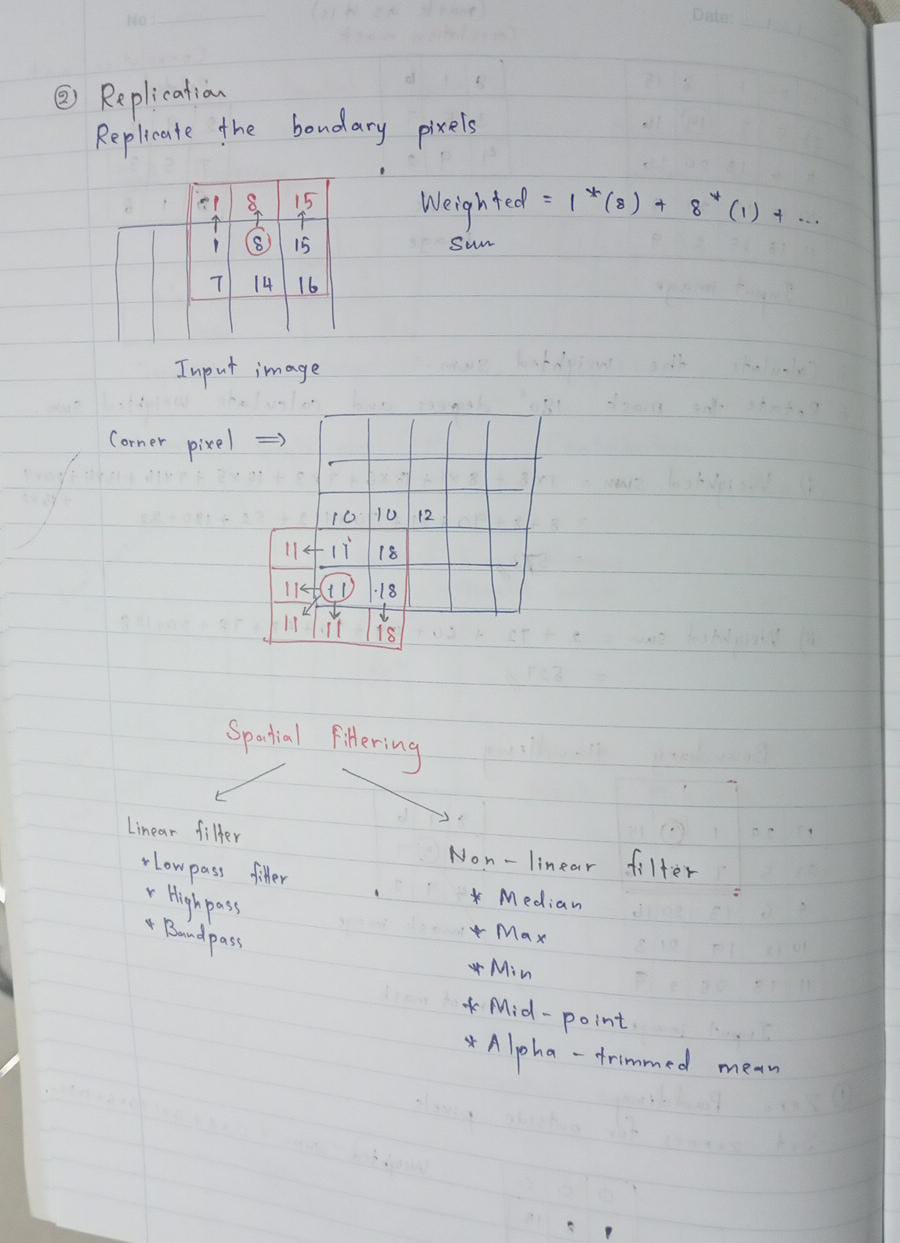 No :
Date:
② Replication
Replicate the bondary pixels
1 8 15
1 8 15
7 14 16
Weighted = 1*(8) + 8*(1) + ...
Sum
Input image
Corner pixel ⇒
10 10 12
11 ← 11 18
11 ← 11 18
11 11 18
Spatial Filtering
Linear filter
* Lowpass filter
* Highpass
* Bandpass
Non-linear filter
* Median
* Max
* Min
* Mid-point
* Alpha-trimmed mean